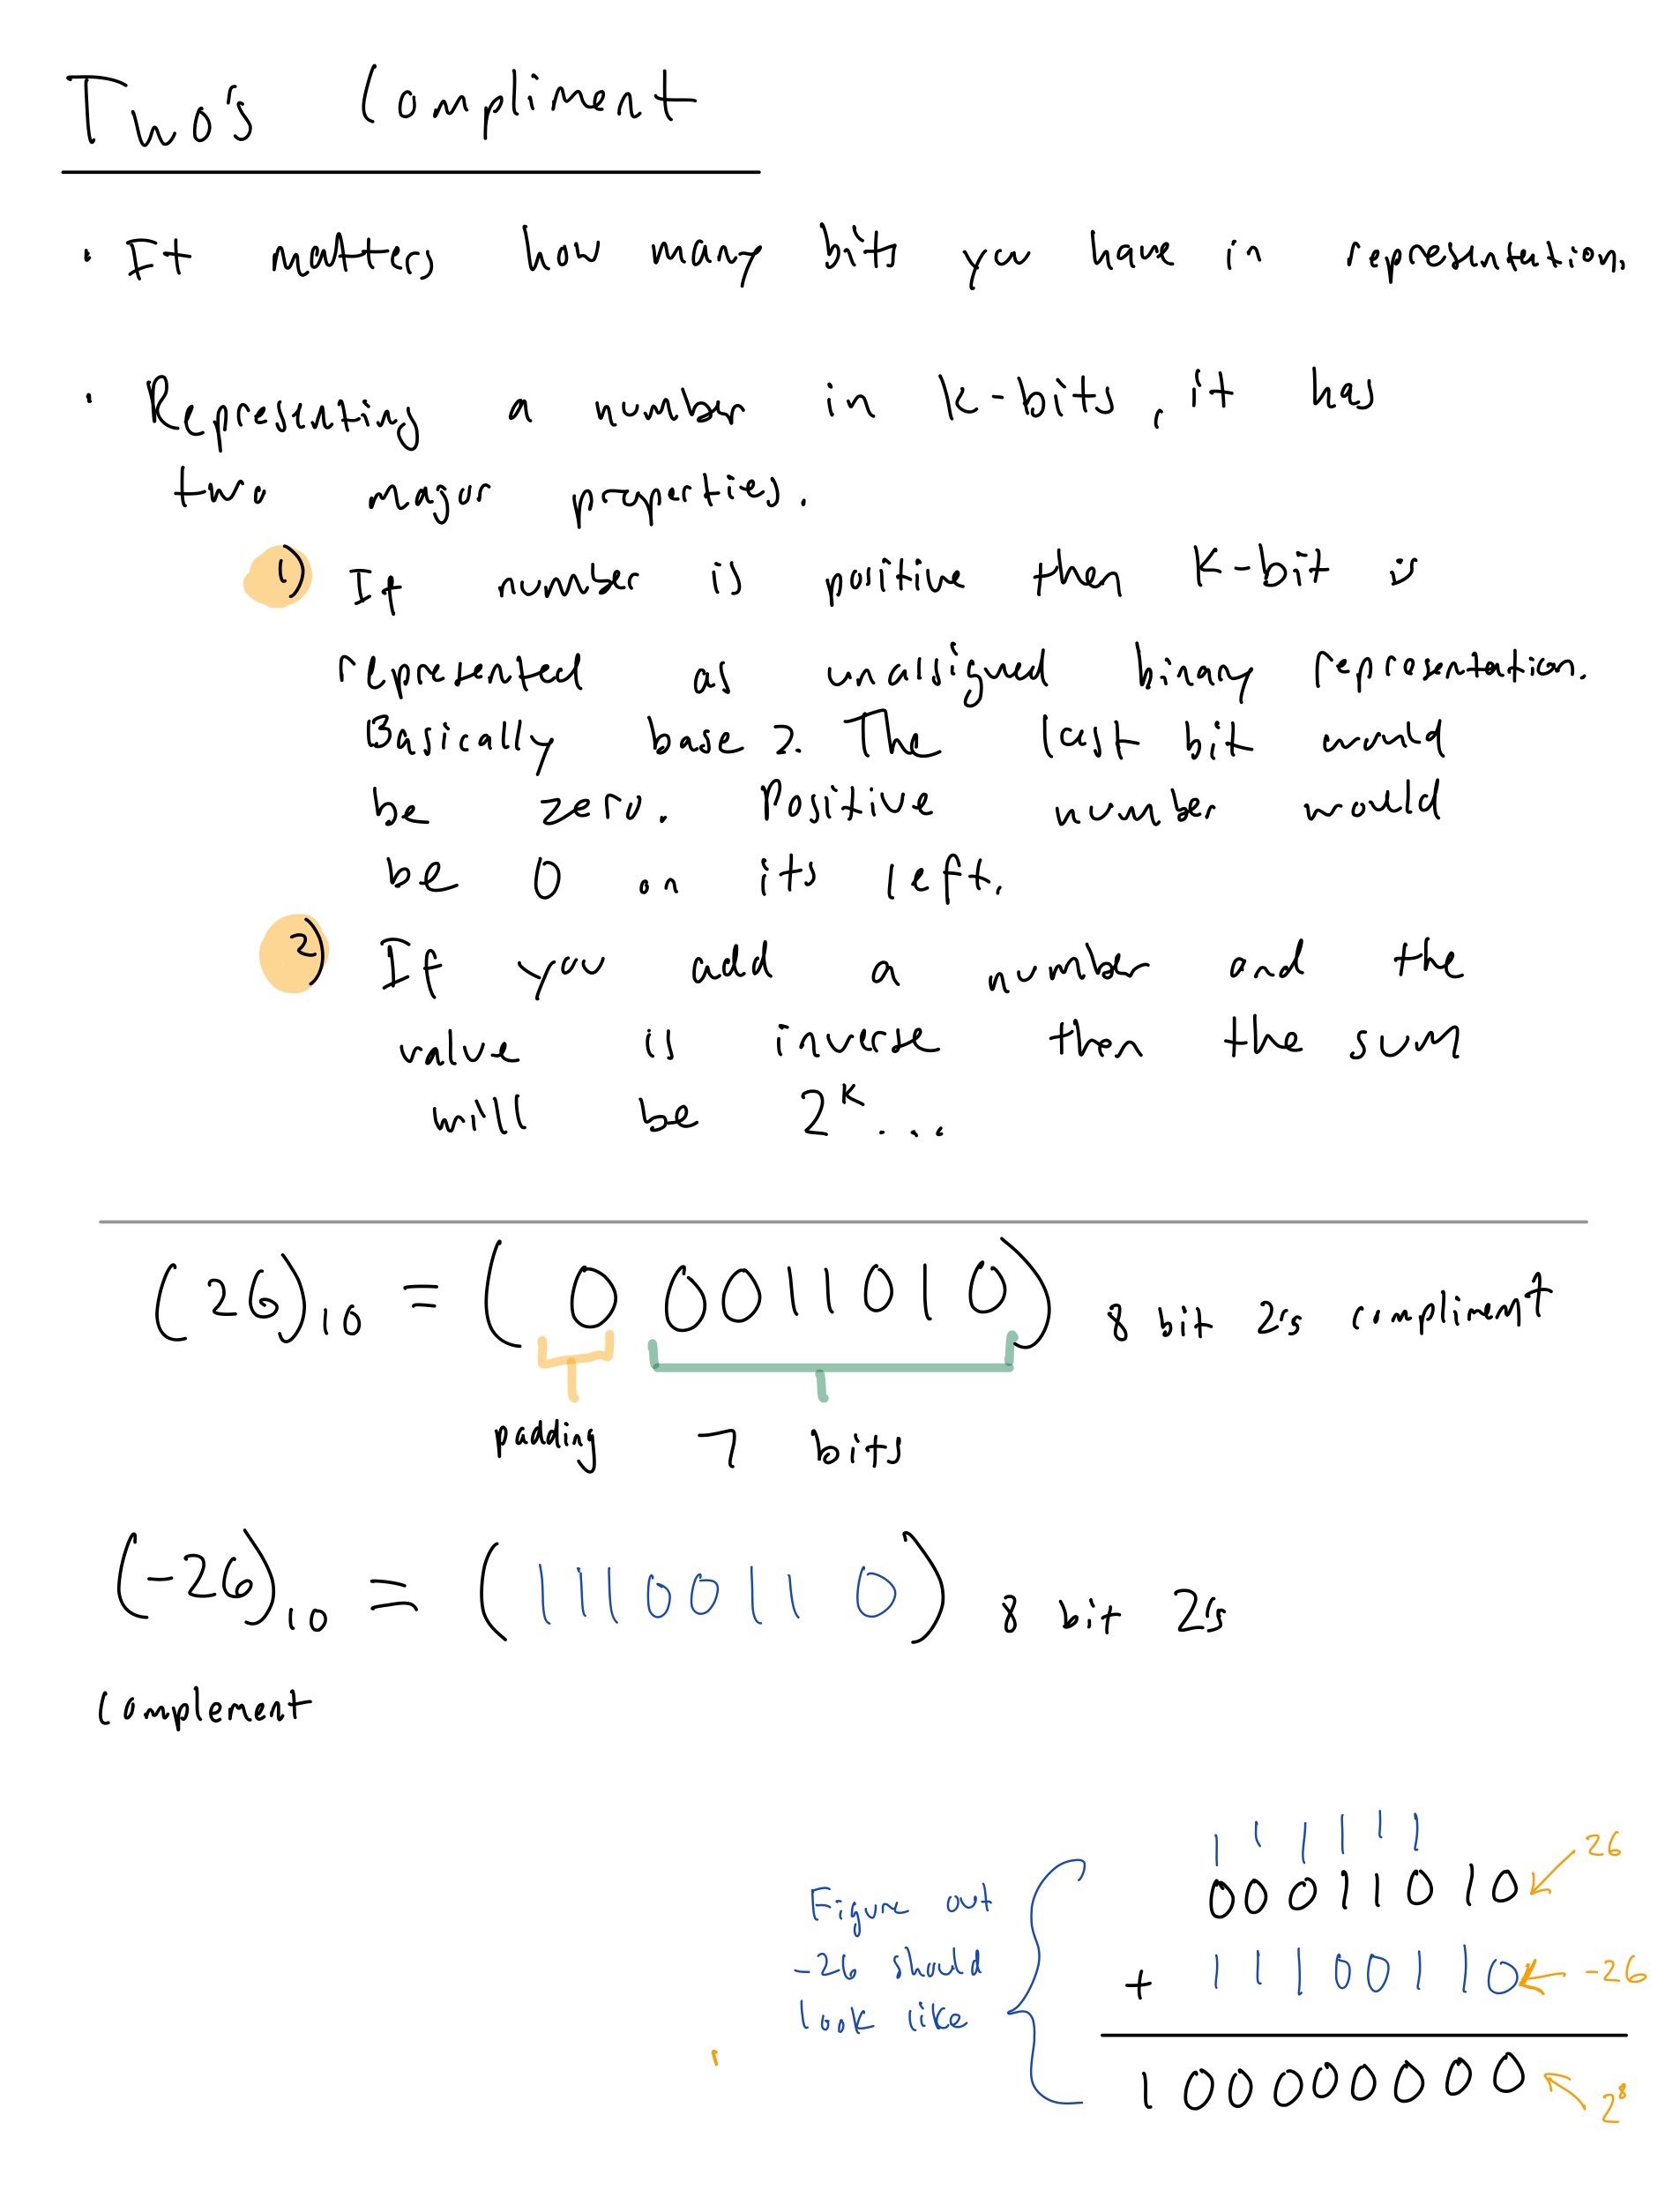 Two's Compliment
• It matters how many bits you have in representation.
• Representing a number in k-bits, it has
two major properties.
1) If number is positive then K-bit is
represented as unassigned binary representation.
Basically base 2. The last bit would
be zero. Positive number would
be 0 on its left.
2) If you add a number and the
value is inverse then the sum
will be 2^K...
(26)10 = (0 0011010) 8 bit 2s compliment
padding 7 bits
(-26)10 = (11100110) 8 bit 2s
Complement
1 1 1 1 1 1
00011010 26
Figure out
-26 should
look like
+ 11100110 -26
100000000 2^8